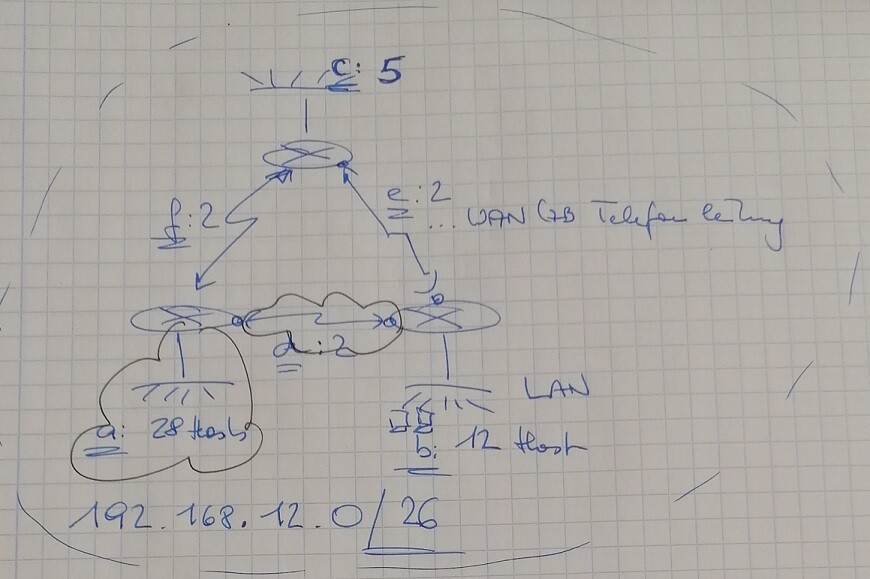 c: 5
f: 2
e: 2
... WAN (zB Telefonleitung
d: 2
LAN
a: 28 Hosts
b: 12 Host
192.168.12.0/26